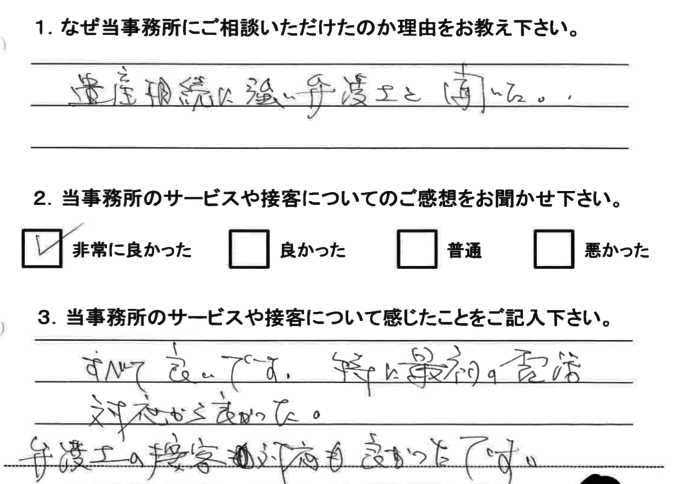 1. なぜ当事務所にご相談いただけたのか理由をお教え下さい。
遺産相続に強い弁護士と聞いた。
2. 当事務所のサービスや接客についてのご感想をお聞かせ下さい。
非常に良かった 良かった 普通 悪かった
3. 当事務所のサービスや接客について感じたことをご記入下さい。
すべて良いです。特に最初の電話
対応から良かった。
弁護士の接客も対応も良かったです。